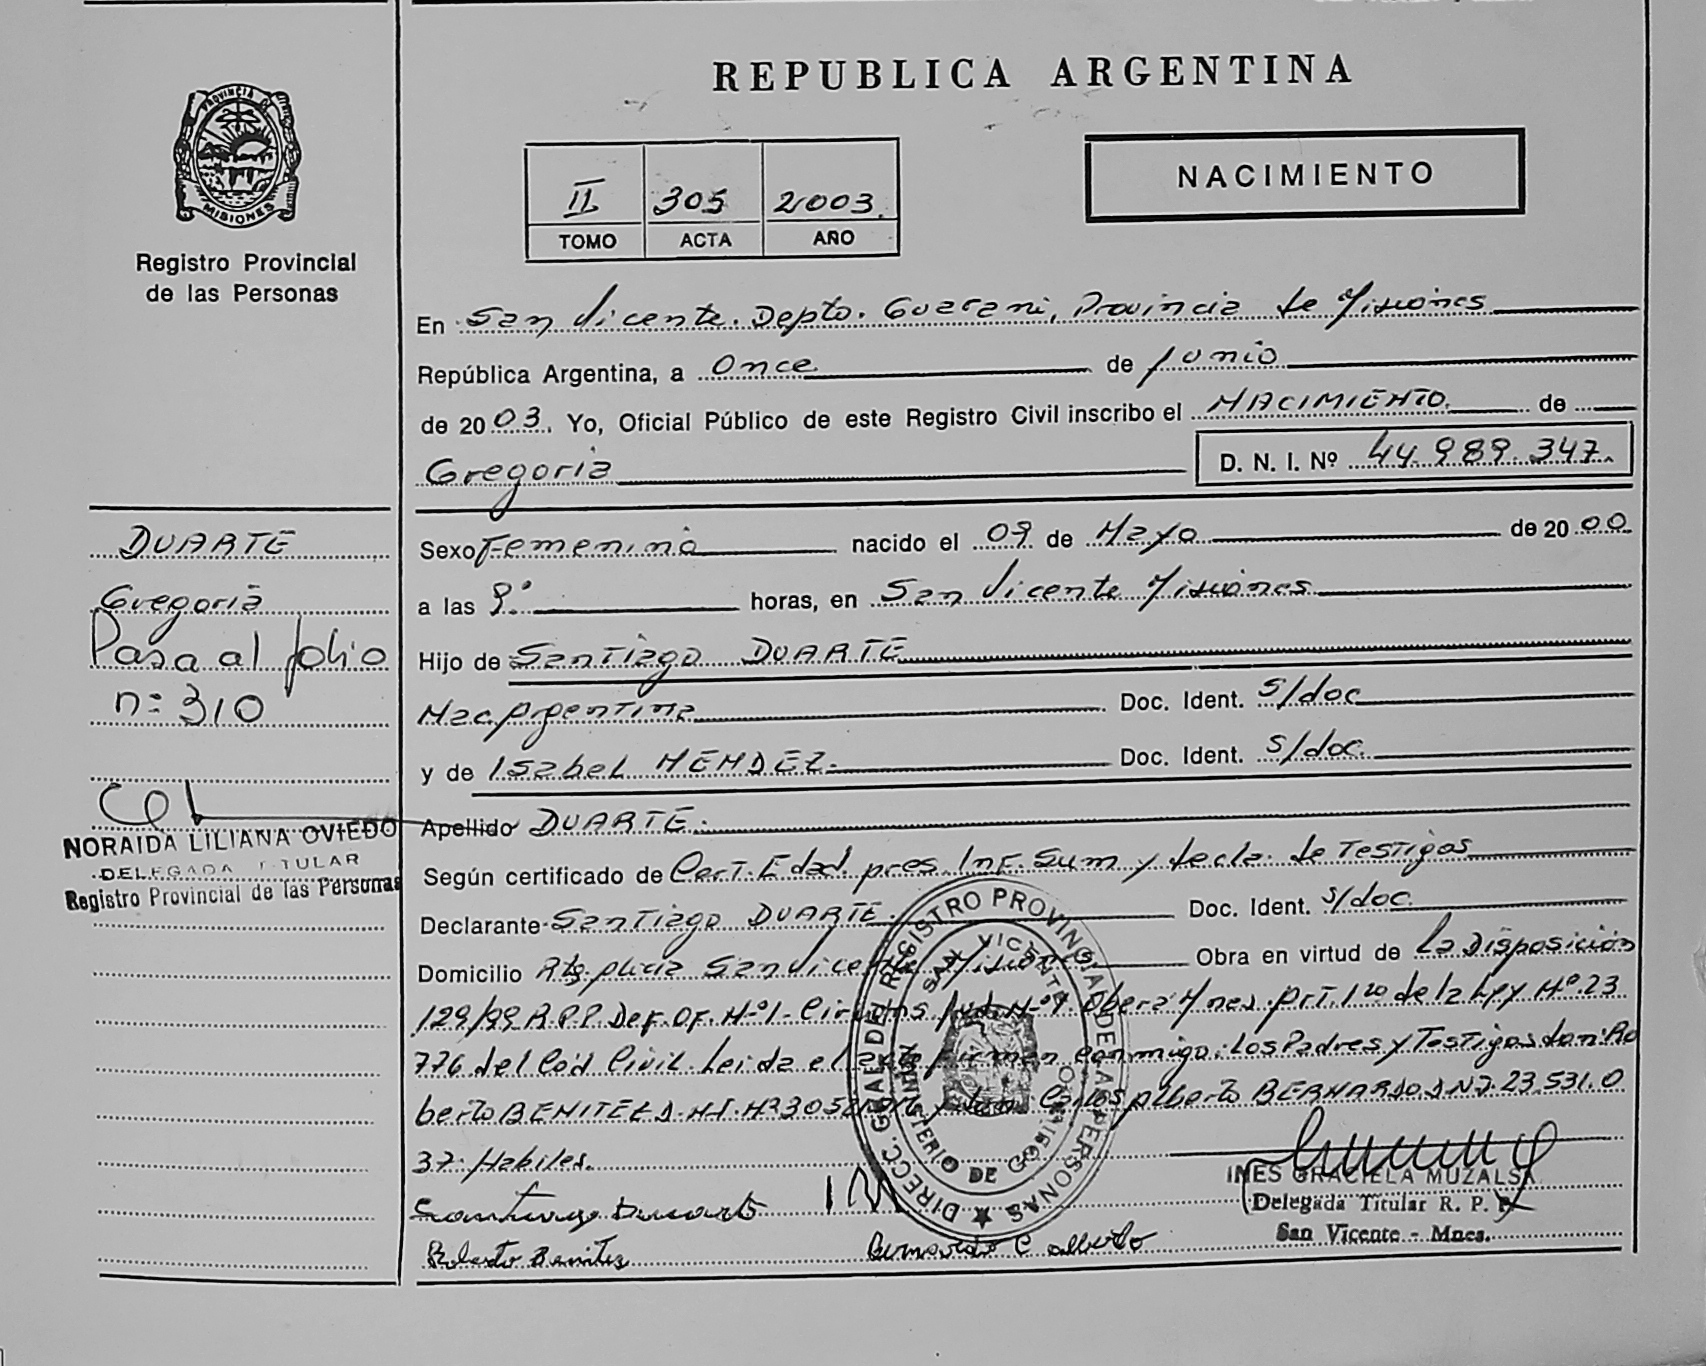 REPUBLICA ARGENTINA
PROVINCIA DE
MISIONES
Registro Provincial
de las Personas
II 305 2003.
TOMO ACTA AÑO
NACIMIENTO
En San Vicente. Depto. Guarani, Provincia de Misiones
República Argentina, a Once de Junio
de 2003. Yo, Oficial Público de este Registro Civil inscribo el NACIMIENTO de
Gregoria D. N. I. Nº 44.989.347.
DUARTE
Gregoria
Pasa al folio
n: 310
NORAIDA LILIANA OVIEDO
DELEGADA TITULAR
Registro Provincial de las Personas
Sexo Femenino nacido el 09 de Mayo de 2000
a las 9: horas, en San Vicente Misiones
Hijo de Santiago DUARTE
Nac. Argentina Doc. Ident. S/doc
y de Isabel MENDEZ. Doc. Ident. S/doc.
Apellido DUARTE.
Según certificado de Cert. Edad pres. Inf. Sum y decla. de Testigos
Declarante Santiago DUARTE. Doc. Ident. S/doc
Domicilio San Vicente Misiones Obra en virtud de La Disposición
129/99 R.P.P. Def. Of. Nº 1 Art. 1ro de la Ley Nº 23
776 del Cod Civil. Leida el acta firman conmigo: Los Padres y Testigos don Ro
berto BENITEZ Carlos Alberto BERNARDO DNI. 23.531.0
37. Habiles.
Santiago Duarte
Roberto Benitez Bernardo C alberto
INES GRACIELA MUZALSK
Delegada Titular R. P. P.
San Vicente - Mnes.
DIRECC. GRAL. DEL REGISTRO PROVINCIAL DE LAS PERSONAS
SAN VICENTE
MINISTERIO DE GOBIERNO